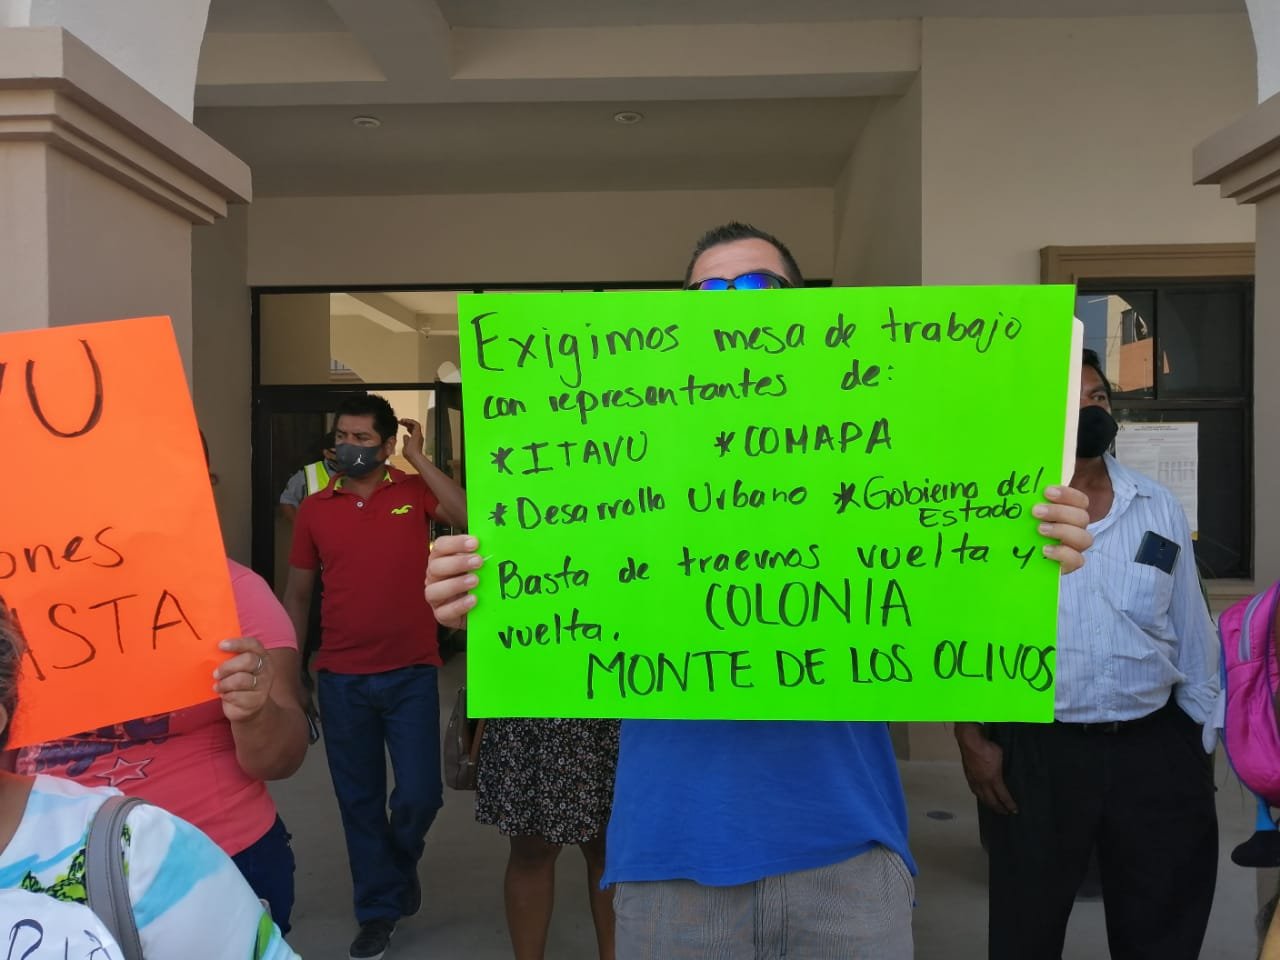 Exigimos mesa de trabajo
con representantes de:
*ITAVU *COMAPA
*Desarrollo Urbano *Gobierno del
Estado
Basta de traernos vuelta y
vuelta. COLONIA
MONTE DE LOS OLIVOS
VU
ones
ASTA